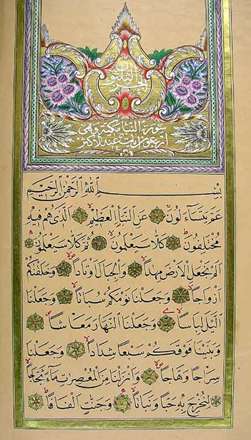 سورة النبا مكية وهي
بِسْمِ اللّٰهِ الرَّحْمٰنِ الرَّحِيمِ
عَمَّ يَتَسَاءَلُونَ عَنِ النَّبَاِ الْعَظِيمِ الَّذِى هُمْ فِيهِ
مُخْتَلِفُونَ كَلَّا سَيَعْلَمُونَ ثُمَّ كَلَّا سَيَعْلَمُونَ
اَلَمْ نَجْعَلِ الْاَرْضَ مِهَادًا وَالْجِبَالَ اَوْتَادًا وَخَلَقْنَاكُمْ
اَزْوَاجًا وَجَعَلْنَا نَوْمَكُمْ سُبَاتًا وَجَعَلْنَا
الَّيْلَ لِبَاسًا وَجَعَلْنَا النَّهَارَ مَعَاشًا
وَبَنَيْنَا فَوْقَكُمْ سَبْعًا شِدَادًا وَجَعَلْنَا
سِرَاجًا وَهَّاجًا وَاَنْزَلْنَا مِنَ الْمُعْصِرَاتِ مَاءً ثَجَّاجًا
لِنُخْرِجَ بِهِ حَبًّا وَنَبَاتًا وَجَنَّاتٍ اَلْفَافًا